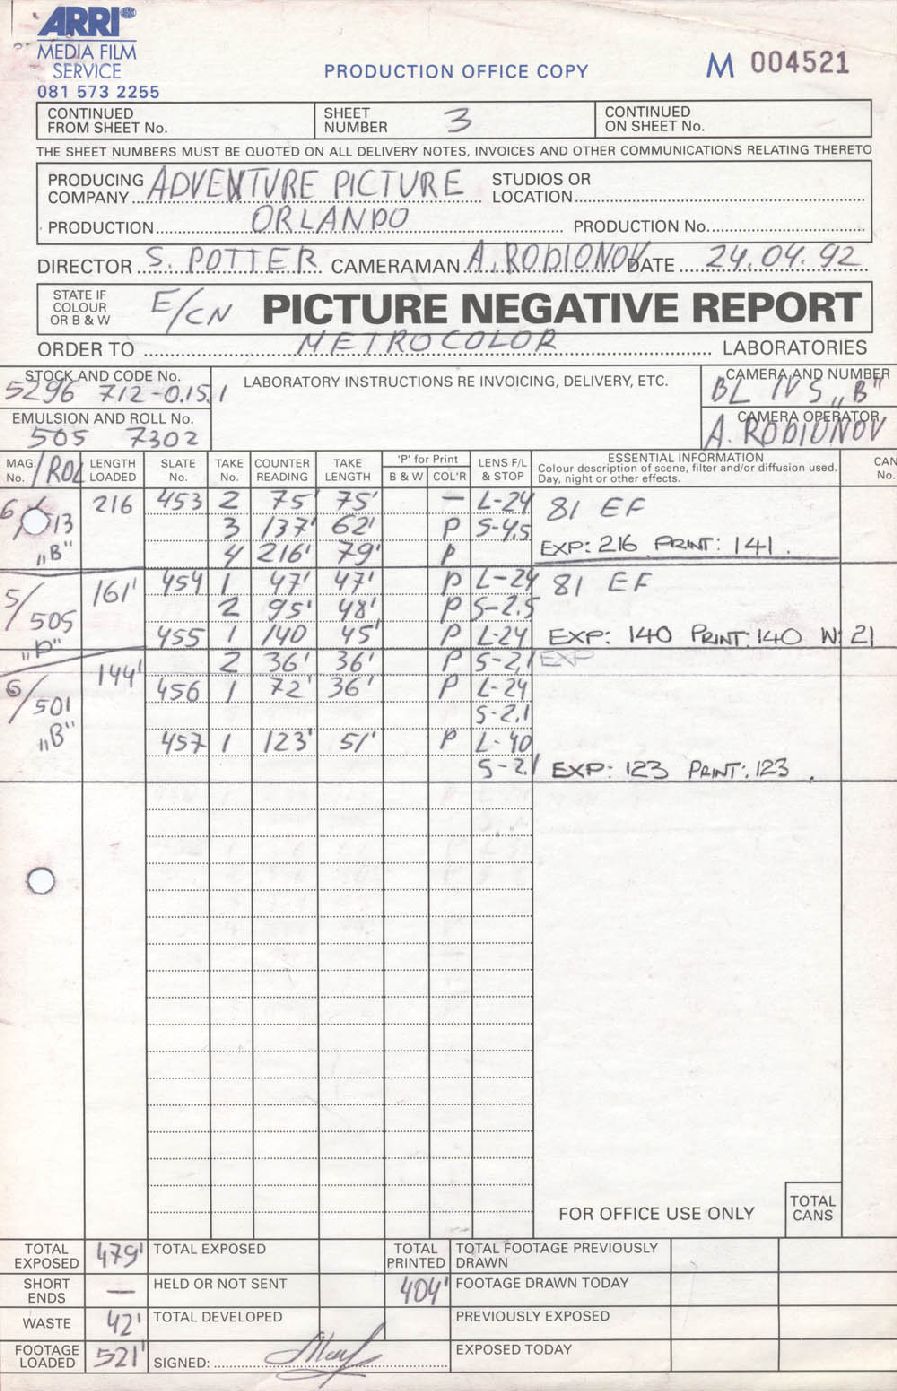 ARRI
MEDIA FILM
SERVICE
081 573 2255
PRODUCTION OFFICE COPY
M 004521
CONTINUED FROM SHEET No.
SHEET NUMBER 3
CONTINUED ON SHEET No.
THE SHEET NUMBERS MUST BE QUOTED ON ALL DELIVERY NOTES, INVOICES AND OTHER COMMUNICATIONS RELATING THERETO
PRODUCING COMPANY ADVENTURE PICTURE STUDIOS OR LOCATION
PRODUCTION ORLANDO PRODUCTION No.
DIRECTOR S. POTTER CAMERAMAN A. RODIONOV DATE 24.04.92
STATE IF COLOUR OR B & W E/CN PICTURE NEGATIVE REPORT
ORDER TO METROCOLOR LABORATORIES
STOCK AND CODE No.
5296 712-0.15.1
LABORATORY INSTRUCTIONS RE INVOICING, DELIVERY, ETC.
CAMERA AND NUMBER
BL IVS "B"
EMULSION AND ROLL No.
505 7302
CAMERA OPERATOR
A. RODIONOV
MAG No. /ROL LENGTH LOADED SLATE No. TAKE No. COUNTER READING TAKE LENGTH 'P' for Print B & W COL'R LENS F/L & STOP ESSENTIAL INFORMATION Colour description of scene, filter and/or diffusion used. Day, night or other effects. CAN No.
6/ 216 453 2 75' 75' – L-24 81 EF
13 3 137' 62' P S-4.5
"B" 4 216' 79' P EXP: 216 PRINT: 141.
5/ 161' 454 1 47' 47' P L-24 81 EF
505 2 95' 48' P S-2.5
455 1 140 45' P L-24 EXP: 140 PRINT: 140 W: 21
144' 2 36' 36' P S-2.1 EXP
6/501 456 1 72' 36' P L-24
S-2.1
"B" 457 1 123' 51' P L-40
S-2.1 EXP: 123 PRINT: 123.
FOR OFFICE USE ONLY TOTAL CANS
TOTAL EXPOSED 479' TOTAL EXPOSED TOTAL PRINTED TOTAL FOOTAGE PREVIOUSLY DRAWN
SHORT ENDS – HELD OR NOT SENT 404' FOOTAGE DRAWN TODAY
WASTE 42' TOTAL DEVELOPED PREVIOUSLY EXPOSED
FOOTAGE LOADED 521' SIGNED: EXPOSED TODAY